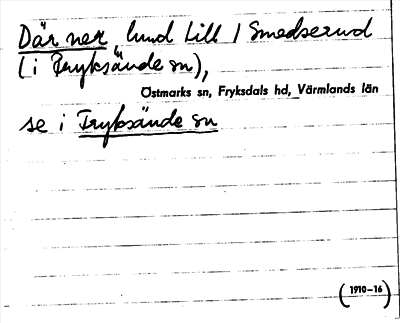 Där ner lund till 1 Smedserud
(i Fryksände sn),
Östmarks sn, Fryksdals hd, Värmlands län
se i Fryksände sn
(1910–16)